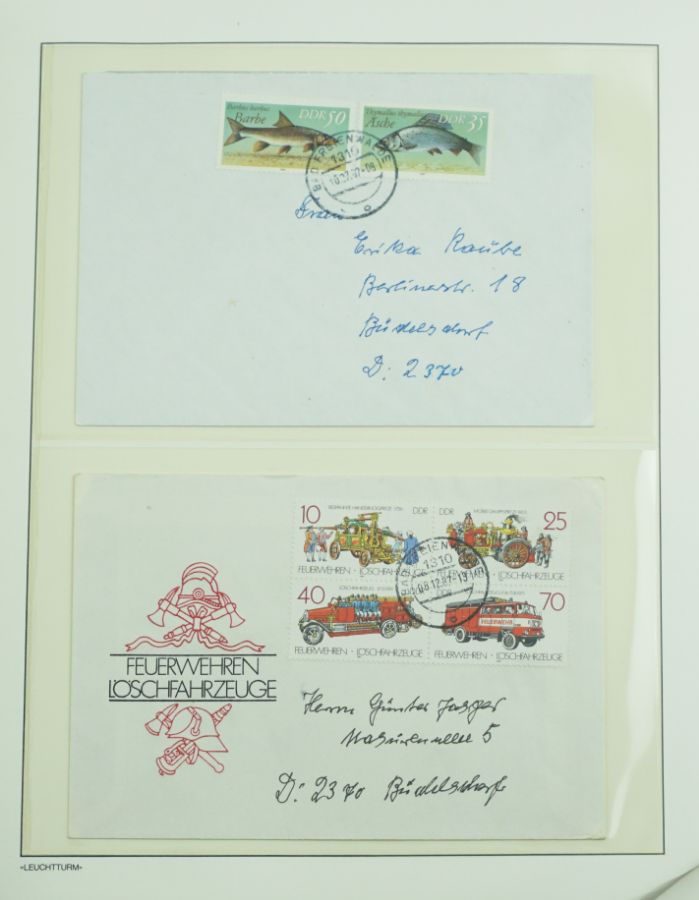 Barbus barbus
Barbe
DDR 50
Thymallus thymallus
Äsche
DDR 35
BAD FREIENWALDE
1310
Frau
Erika Raube
Berlinerstr. 18
Büdelsdorf
D: 2370
10
DDR
FEUERWEHREN · LÖSCHFAHRZEUGE
DDR
25
FEUERWEHREN · LÖSCHFAHRZEUGE
1310
40
FEUERWEHREN · LÖSCHFAHRZEUGE
70
FEUERWEHR
FEUERWEHREN · LÖSCHFAHRZEUGE
FEUERWEHREN
LÖSCHFAHRZEUGE
Herrn Günter Jasper
5
D: 2370 Büdelsdorf
»LEUCHTTURM«